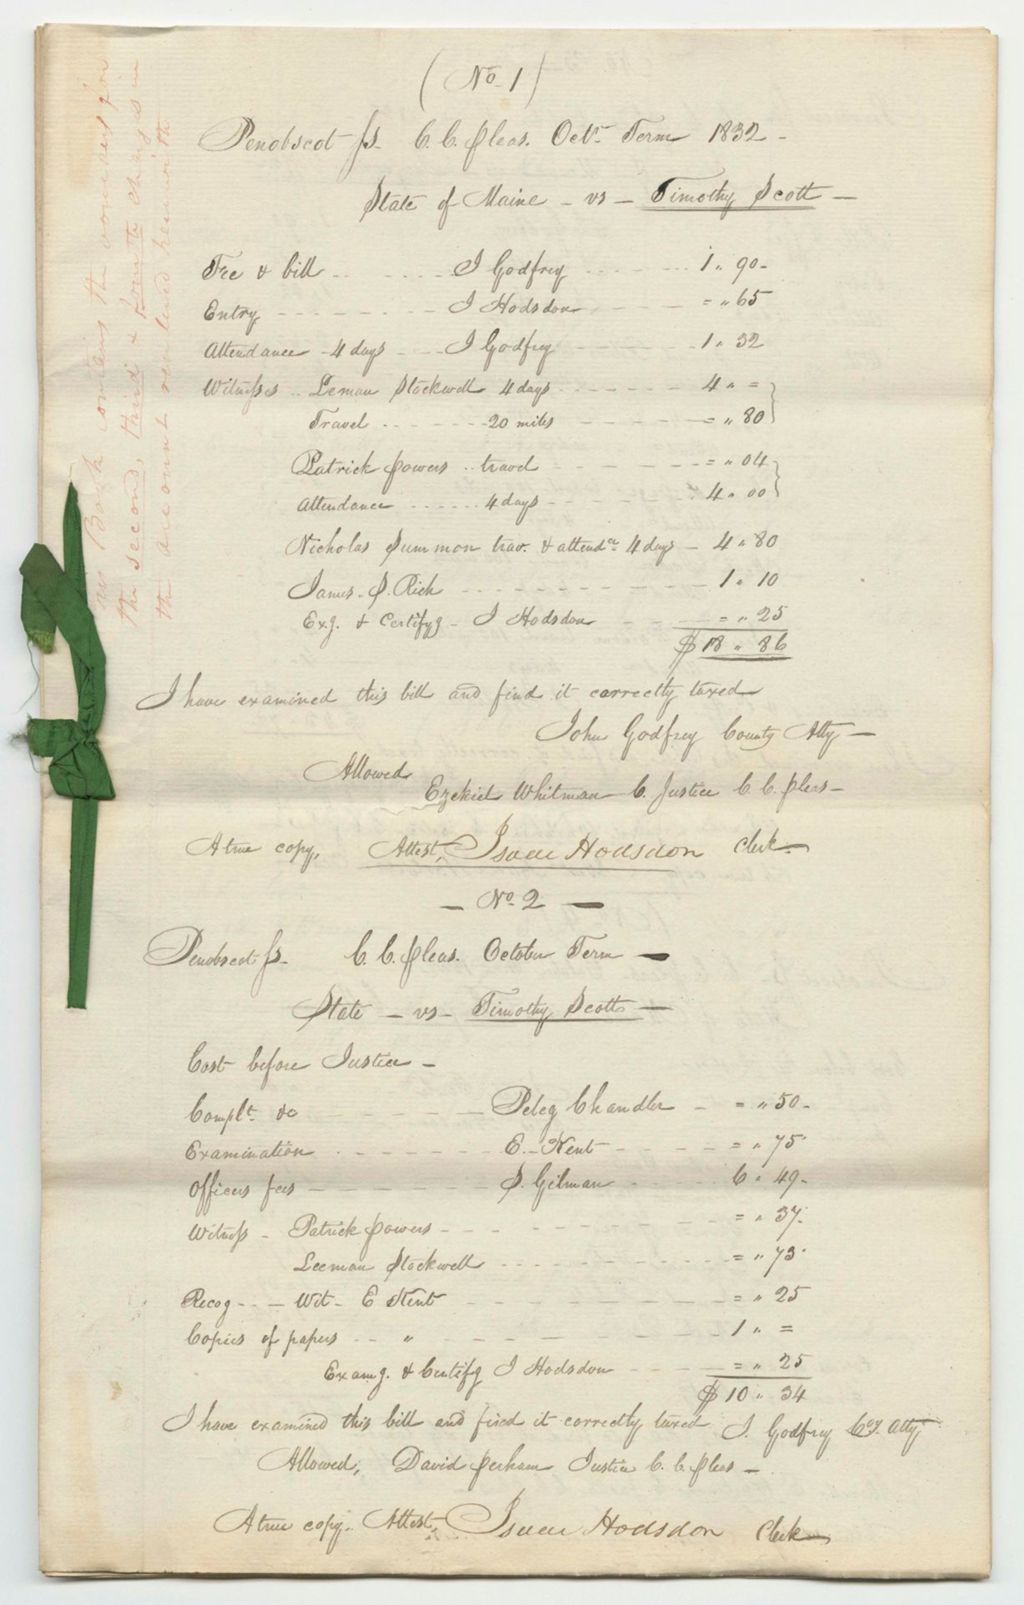 (No. 1)
Penobscot ss. C. C. Pleas. Octr. Term 1832 -
State of Maine - vs - Timothy Scott -
Fee & bill .. - - - - I Godfrey - - - - - 1 " 90 -
Entry - - - - - - - - I Hodsdon - - - - = " 65
Attendance - 4 days - - I Godfrey - - - - 1 " 32
Witnesses .. Leman Stockwell 4 days - - - - - 4 " =
Travel - - - - - - - 20 miles - - - - - = " 80
Patrick Powers .. travel - - - - - - = " 04
Attendance - - - - - - 4 days - - - - - 4 " 00
Nicholas Summon trav. & attendce 4 days - 4 " 80
James S. Rich - - - - - - - - - - 1 " 10
Exg. & Certifyg - I Hodsdon - - - = " 25
$ 18 " 86
I have examined this bill and find it correctly taxed
John Godfrey County Atty -
Allowed
Ezekiel Whitman C. Justice C C Pleas -
A true copy, Attest, Isaac Hodsdon Clerk
- No. 2 -
Penobscot ss. C. C. Pleas. October Term -
State - vs - Timothy Scott -
Cost before Justice -
Complt. &c - - - - - - Peleg Chandler - = " 50 -
Examination - - - - - - - E. Kent - - - - = " 75
Officers fees - - - - - - S. Gilman - - - 6 " 49 -
Witness - Patrick Powers - - - - - - - - = " 37
Leeman Stockwell - - - - - - - - - = " 73
Recog - - - Wit - E Kent - - - - - - - = " 25
Copies of papers - - " - - - - - - - - 1 " =
Examg. & Certifg I Hodsdon - - - - = " 25
$ 10 " 34
I have examined this bill and find it correctly taxed I. Godfrey Coy. Atty
Allowed, David Perham Justice C. C. Pleas -
A true copy. Attest, Isaac Hodsdon Clerk
Book contains the
the second, third & fourth charges in
the account rendered herewith